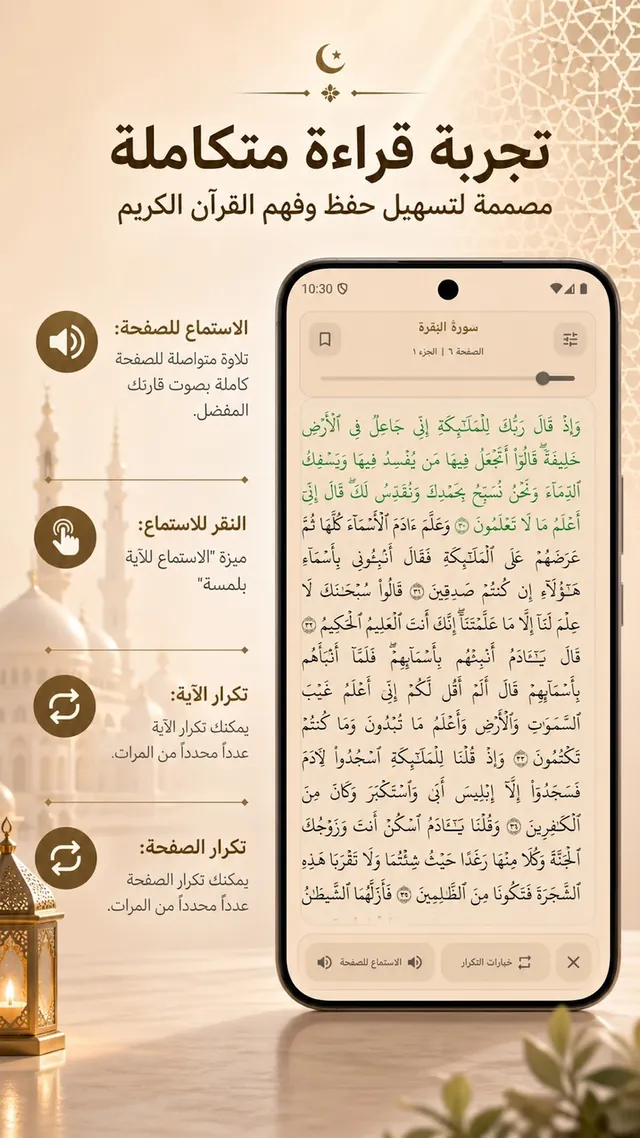 تجربة قراءة متكاملة
مصممة لتسهيل حفظ وفهم القرآن الكريم
الاستماع للصفحة:
تلاوة متواصلة للصفحة
كاملة بصوت قارئك
المفضل.
النقر للاستماع:
ميزة "الاستماع للآية
بلمسة"
تكرار الآية:
يمكنك تكرار الآية
عدداً محدداً من المرات.
تكرار الصفحة:
يمكنك تكرار الصفحة
عدداً محدداً من المرات.
10:30
سورة البقرة
الصفحة ٦ | الجزء ١
وَإِذْ قَالَ رَبُّكَ لِلْمَلَٰٓئِكَةِ إِنِّى جَاعِلٌ فِى ٱلْأَرْضِ
خَلِيفَةً ۖ قَالُوٓا۟ أَتَجْعَلُ فِيهَا مَن يُفْسِدُ فِيهَا وَيَسْفِكُ
ٱلدِّمَآءَ وَنَحْنُ نُسَبِّحُ بِحَمْدِكَ وَنُقَدِّسُ لَكَ ۖ قَالَ إِنِّىٓ
أَعْلَمُ مَا لَا تَعْلَمُونَ ٣٠ وَعَلَّمَ ءَادَمَ ٱلْأَسْمَآءَ كُلَّهَا ثُمَّ
عَرَضَهُمْ عَلَى ٱلْمَلَٰٓئِكَةِ فَقَالَ أَنۢبِـُٔونِى بِأَسْمَآءِ
هَٰٓؤُلَآءِ إِن كُنتُمْ صَٰدِقِينَ ٣١ قَالُوا۟ سُبْحَٰنَكَ لَا
عِلْمَ لَنَآ إِلَّا مَا عَلَّمْتَنَآ ۖ إِنَّكَ أَنتَ ٱلْعَلِيمُ ٱلْحَكِيمُ ٣٢
قَالَ يَٰٓـَٔادَمُ أَنۢبِئْهُم بِأَسْمَآئِهِمْ ۖ فَلَمَّآ أَنۢبَأَهُم
بِأَسْمَآئِهِمْ قَالَ أَلَمْ أَقُل لَّكُمْ إِنِّىٓ أَعْلَمُ غَيْبَ
ٱلسَّمَٰوَٰتِ وَٱلْأَرْضِ وَأَعْلَمُ مَا تُبْدُونَ وَمَا كُنتُمْ
تَكْتُمُونَ ٣٣ وَإِذْ قُلْنَا لِلْمَلَٰٓئِكَةِ ٱسْجُدُوا۟ لِءَادَمَ
فَسَجَدُوٓا۟ إِلَّآ إِبْلِيسَ أَبَىٰ وَٱسْتَكْبَرَ وَكَانَ مِنَ
ٱلْكَٰفِرِينَ ٣٤ وَقُلْنَا يَٰٓـَٔادَمُ ٱسْكُنْ أَنتَ وَزَوْجُكَ
ٱلْجَنَّةَ وَكُلَا مِنْهَا رَغَدًا حَيْثُ شِئْتُمَا وَلَا تَقْرَبَا هَٰذِهِ
ٱلشَّجَرَةَ فَتَكُونَا مِنَ ٱلظَّٰلِمِينَ ٣٥ فَأَزَلَّهُمَا ٱلشَّيْطَٰنُ
خيارات التكرار
الاستماع للصفحة